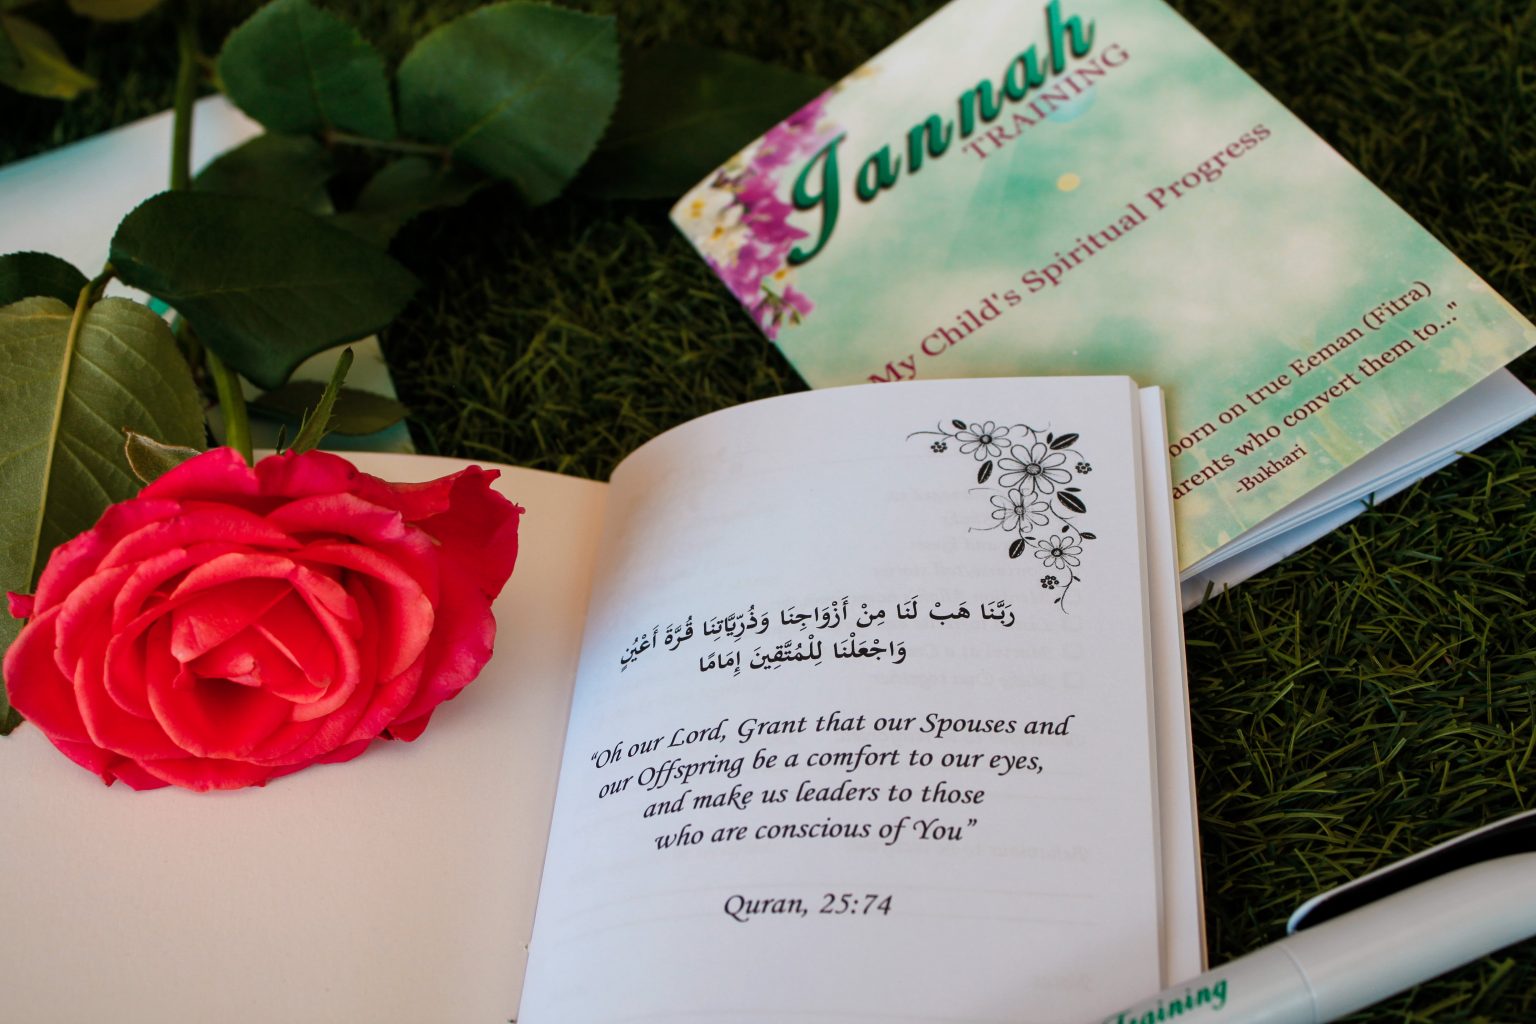 Jannah
TRAINING
My Child's Spiritual Progress
born on true Eeman (Fitra)
parents who convert them to..."
-Bukhari
رَبَّنَا هَبْ لَنَا مِنْ أَزْوَاجِنَا وَذُرِّيَّاتِنَا قُرَّةَ أَعْيُنٍ
وَاجْعَلْنَا لِلْمُتَّقِينَ إِمَامًا
“Oh our Lord, Grant that our Spouses and
our Offspring be a comfort to our eyes,
and make us leaders to those
who are conscious of You”
Quran, 25:74
Training